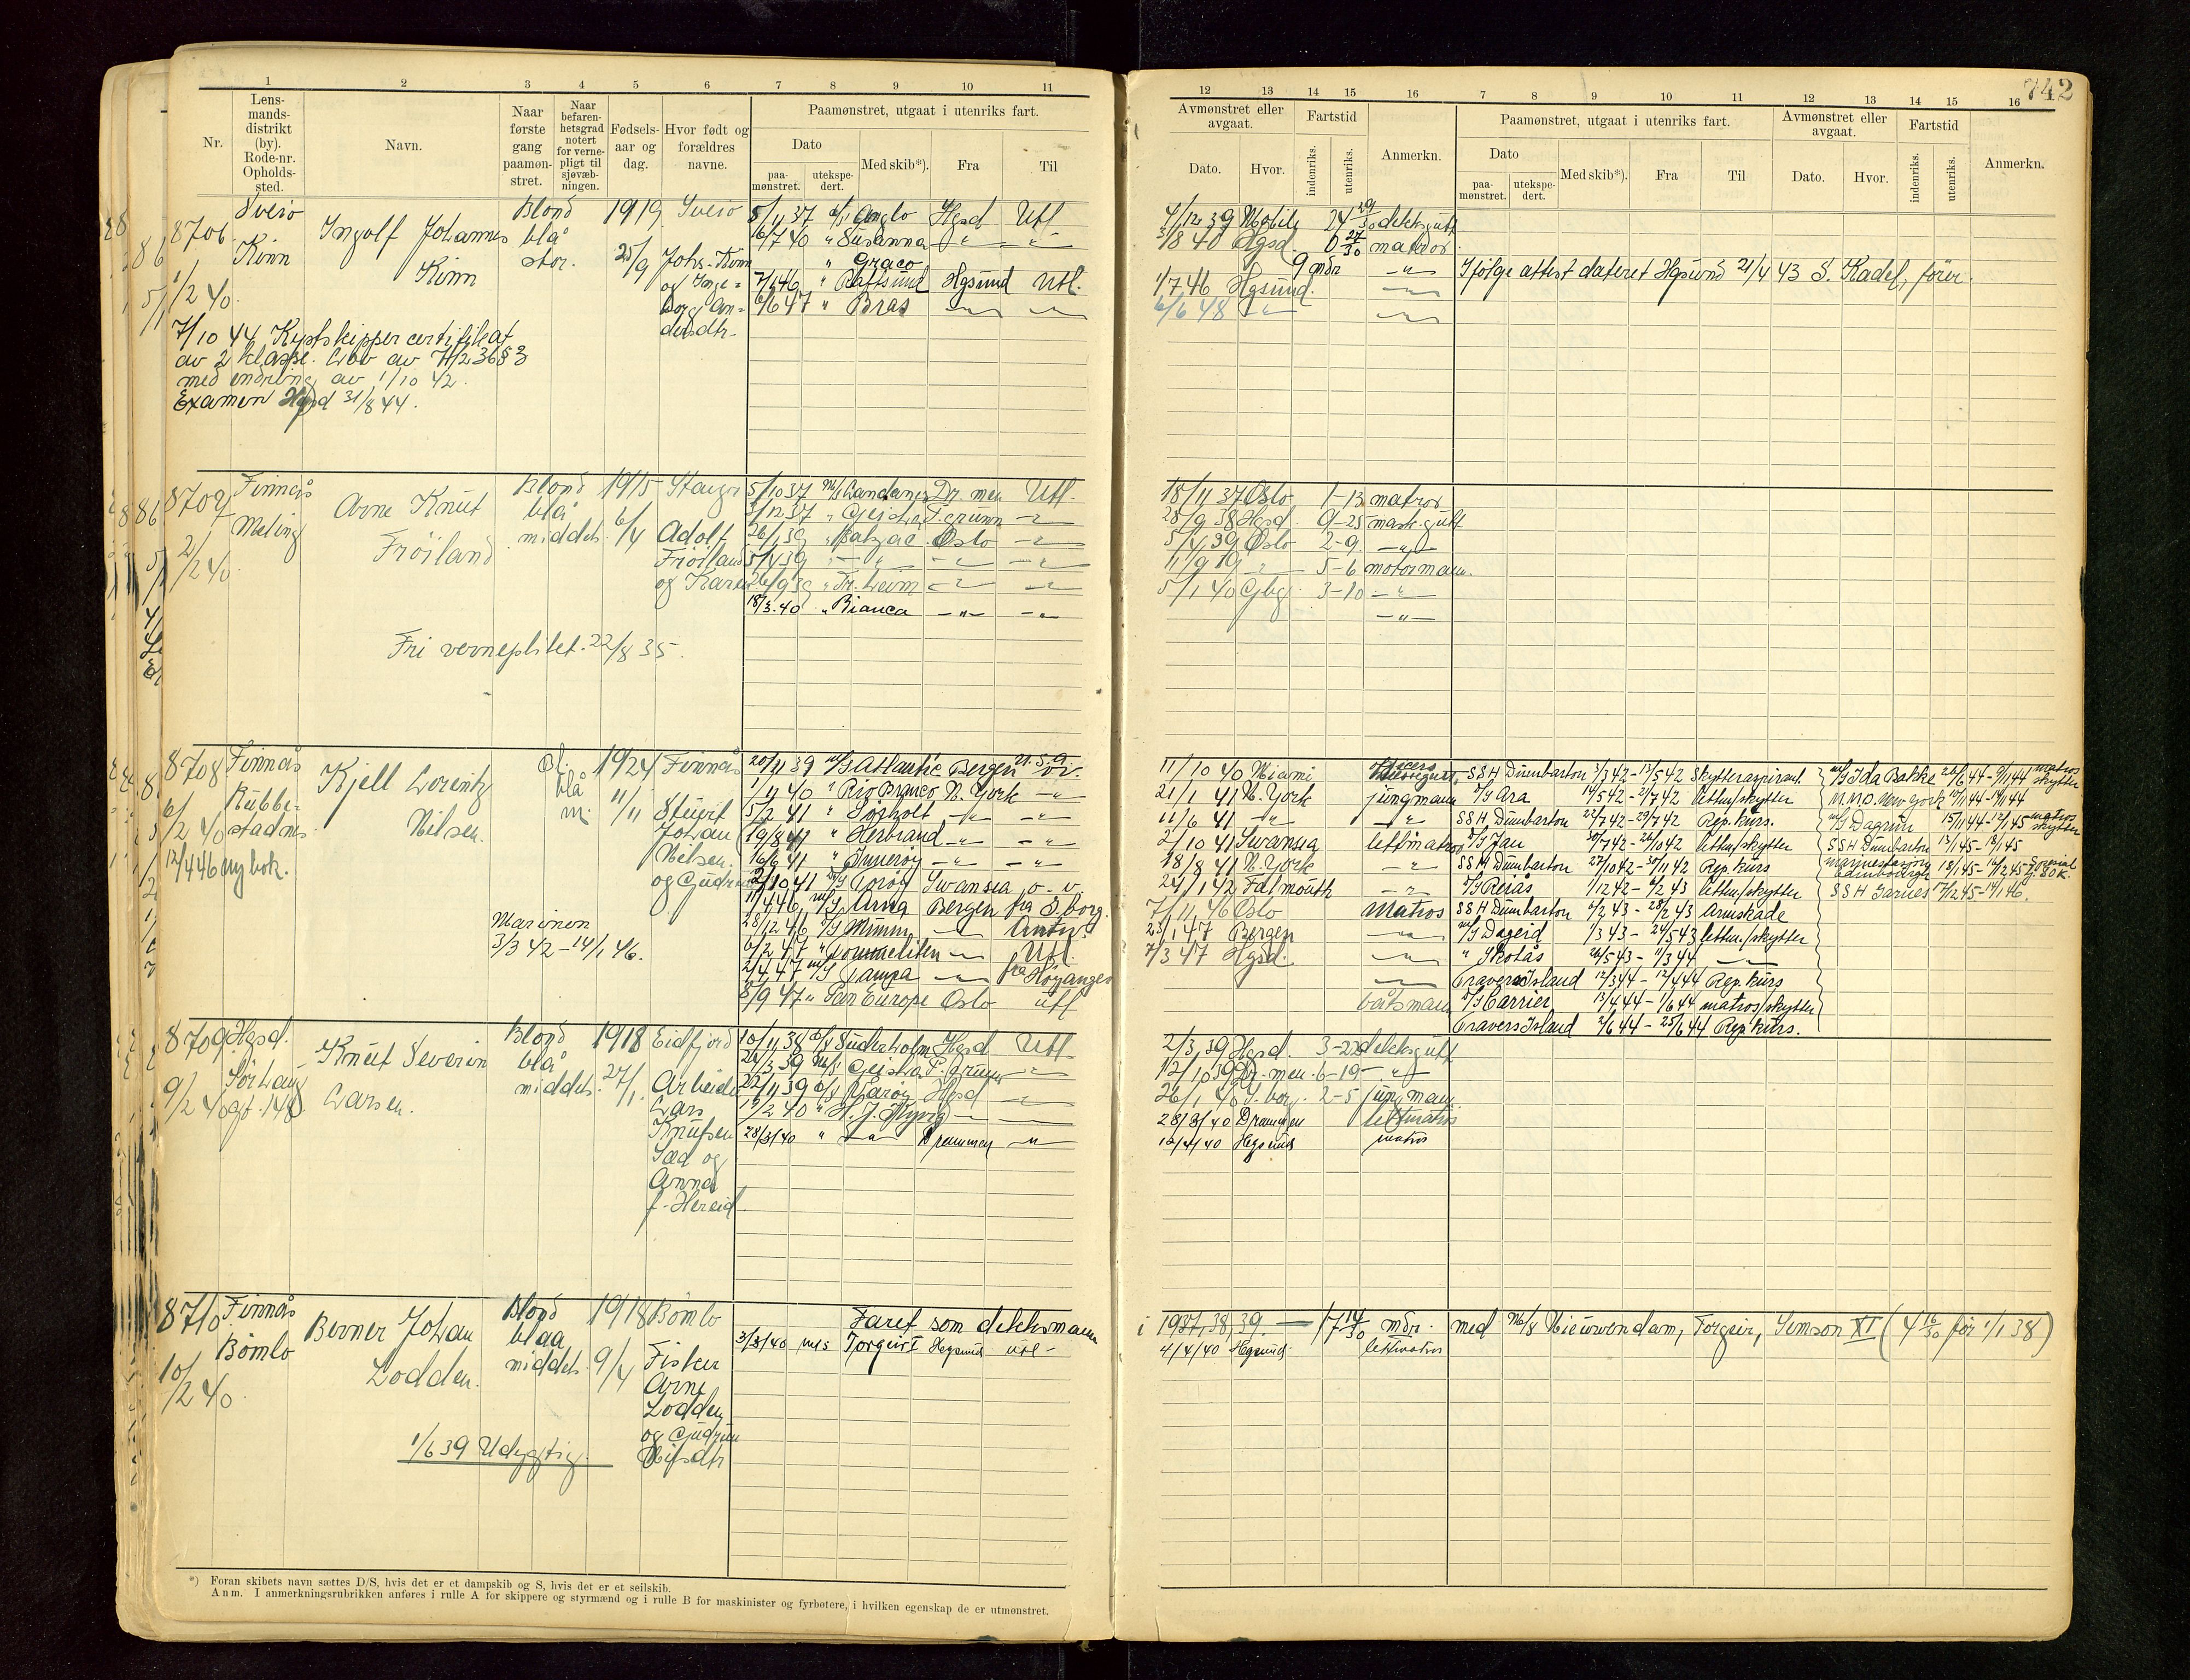 742
1 2 3 4 5 6 7 8 9 10 11
Nr.
Lens-
mands-
distrikt
(by).
Rode-nr.
Opholds-
sted.
Navn.
Naar
første
gang
paamøn-
stret.
Naar
befaren-
hetsgrad
notert
for verne-
pligt til
sjøvæb-
ningen.
Fødsels-
aar og
dag.
Hvor født og
forældres
navne.
Paamønstret, utgaat i utenriks fart.
Dato
paa-
mønstret.
utekspe-
dert.
Med skib*).
Fra
Til
12 13 14 15 16 7 8 9 10 11 12 13 14 15 16
Avmønstret eller
avgaat.
Dato.
Hvor.
Fartstid
indenriks.
utenriks.
Anmerkn.
Paamønstret, utgaat i utenriks fart.
Dato
paa-
mønstret.
utekspe-
dert.
Med skib*).
Fra
Til
Avmønstret eller
avgaat.
Dato.
Hvor.
Fartstid
indenriks.
utenriks.
Anmerkn.
8706
Sveio
Kinn
1/2 40.
Ingolf Johannes
Kinn
Blond
blå
stor.
1919
25/9
Sveio
Johs. Kinn
og Inge-
borg An-
dersdtr.
7/10 44 Kystskippercertifikat
av 2 klasse. Lov av 7/2 36 § 3
med endring av 1/10 42.
Examen Hgsd 31/8 44.
5/11 37 Anglo Hgsd Utl
16/7 40 " Susanna
" Graco
" Raftsund Hgsund Utl.
6/6 47 " Bras
7/12 39 Mobile 24 29/30 dekksgutt
3/8 40 Hgsd. 0 27/30 matros
9 mdr
Ifølge attest dateret Hgsund 21/4 43 S. Kadel, fører.
1/7 46 Hgsund.
6/6 48
8707
Finnås
Mæling
2/2 40
Arne Knut
Frøiland
Blond
blå
middels.
1915
6/4
Adolf
Frøiland
og Karen
Fri verneplikt. 22/8 35.
5/10 37 Dr. men Utl.
3/12 37 " Geisha
26/1 39 " Balzac Oslo
5/4 39
26/9 39 " Tr.heim
18/3.40 " Bianca
18/11 37 Oslo 1-13 matros
28/9 38 Hgsd. 9-25 mask.gutt
5/4 39 Oslo 2-9.
11/9 19 5-6 motormann.
5/1 40 Gbg. 3-10
8708
Finnås
Rubbe-
stadnes
6/2 40
12/4 46 ny bok.
Kjell Lorentz
Nilsen.
bl.
blå
m.
1924
11/11
Finnås
Stuert
Johan
Nilsen.
og Gudrun
Marinen
3/3 42 – 14/1 46.
20/11 39 Atlantic Bergen U.S.A.
1/11 40 " Rio Branco N. York
5/2 41 " Sørholt
19/8 41 " Herbrand
16/6 41 " Innerøy
2/10 41 Torøy Swansea o. v.
11/4 46 m/s Arna Bergen fra S. borg.
28/12 46 Mimm Antw.
6/2 47 " Pommeliten Utl.
2/4 47 m/s Tampa fra Høyanger
8/9 47 " Pan Europe Oslo utl
11/10 40 Miami
21/1 41 N. York jungmann
11/6 41
2/10 41 Swansea lettmatros
18/8 41 N. York
24/1 42 Falmouth
7/11 46 Oslo Matros
23/1 47 Bergen
7/3 47 Hgsd.
båtsmann
SSH Dumbarton 3/3 42 - 13/5 42 Skytteraspirant.
Ara 14/5 42 - 21/7 42 lettm/skytter
SSH Dumbarton 22/7 42 - 29/7 42 Rep. kurs.
Jan 30/7 42 - 26/10 42 lettm/skytter
SSH Dumbarton 27/10 42 - 30/11 42 Rep. kurs
Reias 1/12 42 - 5/2 43 lettm/skytter
SSH Dumbarton 6/2 43 - 28/2 43 Armskade
m/s Dageid 1/3 43 - 24/5 43 lettm./skytter
" Skotås 26/5 43 - 11/3 44
Travers Island 12/3 44 - 12/4 44 Rep. kurs
Carrier 13/4 44 - 1/6 44 matros/skytter
Travers Island 2/6 44 - 25/6 44 Rep. kurs.
m/s Ida Bakke 26/6 44 - 9/11 44 matros skytter
N.N.O. New York 10/11 44 - 14/11 44
m/s Dagrun 15/11 44 - 12/1 45 matros skytter
SSH Dumbarton 13/1 45 - 18/1 45
marinestasjon Edinbourgh 18/1 45 - 16/12 45
SSH Jarnes 17/12 45 - 14/1 46.
8709
Hgsd.
Sørhaug
gt. 148
9/2 40
Knut Severin
Larsen.
Blond
blå
middels.
1918
27/1.
Eidfjord
Arbeider
Lars
Knutsen
Sæd og
Anna
f. Hereid.
10/11 38 Suderholm Hgsd Utl.
24/3 39 m/s Geisha
22/11 39 Karøy Hgsd
12/2 40 " H. J. Kyvig
28/3/40 " Drammen
2/3 39 Hgsd. 3-22 dekksgutt
12/10 39 Dr. men 6-19
26/1 40 S. borg. 2-5 jungmann
28/3/40 Drammen lettmatros
12/4/40 Hgsund matros
8710
Finnås
Bømlo
10/2 40
Berner Johan
Lodden.
Blond
blaa
middels
1918
9/4
Bømlo
Fisker
Arne
Lodden
og Gudrun
Nilsdtr
1/6 39 Udygtig.
Faret som dekksmann
3/3/40 m/s Torgeir I Hgsund utl-
i 1937, 38, 39. — 17 14/30 mdr. med m/s Nieuwendam, Torgeir, Semson XI (4 16/30 før 1/1 38)
4/4/40 Hgsund. lettmatros
*) Foran skibets navn sættes D/S, hvis det er et dampskib og S, hvis det er et seilskib.
Anm. I anmerkningsrubrikken anføres i rulle A for skippere og styrmænd og i rulle B for maskinister og fyrbøtere, i hvilken egenskap de er utmønstret.